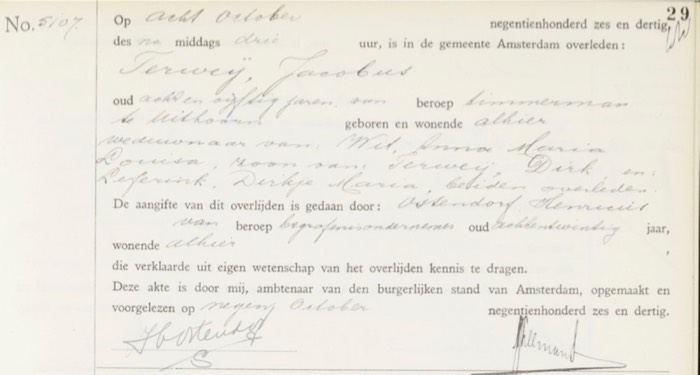 29
No. 5107.
Op acht October negentienhonderd zes en dertig,
des na middags drie uur, is in de gemeente Amsterdam overleden:
Terweij, Jacobus
oud acht en vijftig jaren, van beroep timmerman
te Uithoorn geboren en wonende alhier
weduwnaar van: Wit, Anna Maria
Louisa, zoon van: Terweij, Dirk, en:
Dirkje Maria, beiden overleden.
De aangifte van dit overlijden is gedaan door: Ostendorf Henricus
van beroep begrafenisondernemer oud achtentwintig jaar,
wonende alhier
die verklaarde uit eigen wetenschap van het overlijden kennis te dragen.
Deze akte is door mij, ambtenaar van den burgerlijken stand van Amsterdam, opgemaakt en
voorgelezen op negen October negentienhonderd zes en dertig.